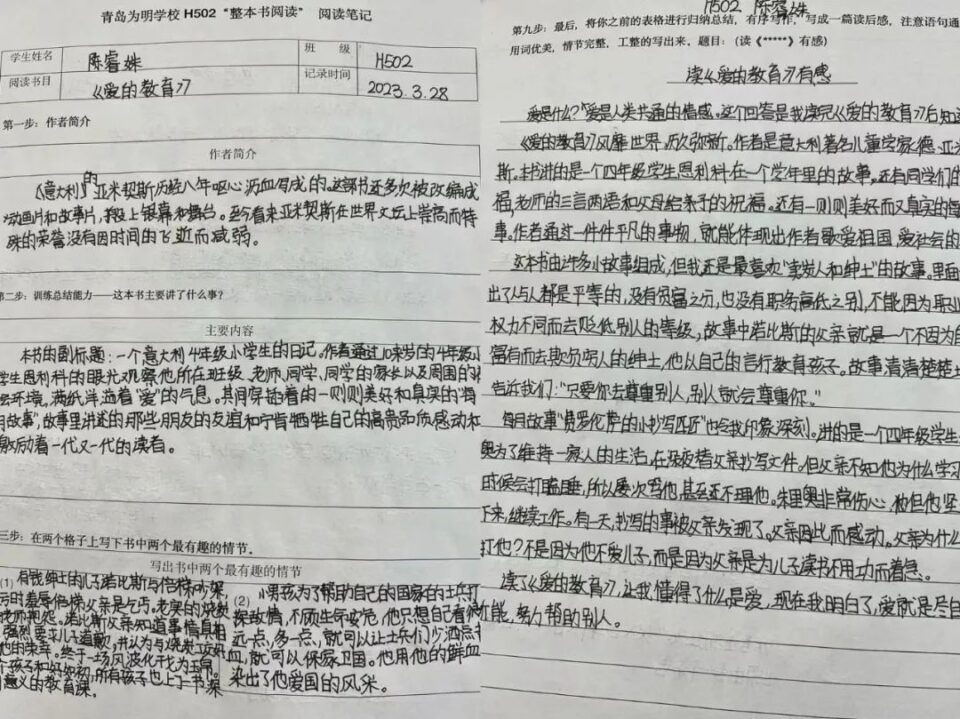 青岛为明学校 H502 "整本书阅读" 阅读笔记
学生姓名 陈睿姝 班 级 H502
阅读书目 《爱的教育》 记录时间 2023.3.28
第一步：作者简介
作者简介
《意大利》的亚米契斯历经八年呕心沥血写成的。这部书还多次被改编成
动画片和故事片，搬上银幕和舞台。至今看来亚米契斯在世界文坛上崇高而特
殊的荣誉没有因时间的飞逝而减弱。
第二步：训练总结能力——这本书主要讲了什么事？
主要内容
本书的副标题：一个意大利4年级小学生的日记。作者通过10来岁的4年级小
学生恩利科的眼光观察他所在班级、老师、同学、同学的家长以及周围的
会环境，满纸洋溢着"爱"的气息。其间穿插着的一则则美好和真实的"每
月故事"，故事里讲述的那些朋友的友谊和宁肯牺牲自己的高贵品质感动和
激励着一代又一代的读者。
三步：在两个格子上写下书中两个最有趣的情节．
写出书中两个最有趣的情节
(1) 有钱绅士的儿子诺比斯与倍梯吵架，
时羞辱倍梯父亲是乞丐。老实的烧炭
老师抱怨。诺比斯父亲知道事情真相
强烈要求儿子道歉，并认为与烧炭工
他的荣幸。终于一场风波化干戈为玉帛。
个孩子和好如初，所有孩子也上了一书深
意义的教育课。
(2) 小男孩为了帮助自己的国家的士兵打
探敌情，不顾生命安危，他只想自己看得
远一点，多一点，就可以让士兵们少洒点
血，就可以保家卫国。他用他的鲜血
染出了他爱国的风采。
H502 陈睿姝
第九步：最后，将你之前的表格进行归纳总结，有序写作，写成一篇读后感，注意语句通
用词优美，情节完整，工整的写出来，题目：（读《*****》有感）
读《爱的教育》有感
爱是什么？"爱是人类共通的情感。这个回答是我读完《爱的教育》后知道
《爱的教育》风靡世界，历久弥新。作者是意大利著名儿童学家德·亚米
斯。本书讲的是一个四年级学生恩利科在一个学年里的故事。还有同学们的
福，老师的三言两语和父母给亲子的祝福。还有一则则美好而又真实的
事。作者通过一件件平凡的事物，就能体现出作者歌爱祖国，爱社会的
这本书由许多小故事组成，但我还是最喜欢"卖炭人和绅士"的故事。里面
出了人与人都是平等的，没有贫富之分，也没有职务高低之别，不能因为职业
权力不同而去贬低别人的等级，故事中诺比斯的父亲就是一个不因为自
富有而去欺负穷人的绅士，他以自己的言行教育孩子。故事清清楚楚
告诉我们："只要你去尊重别人，别人就会尊重你。"
每月故事"费罗伦萨的小抄写匹匠"也令我印象深刻。讲的是一个四年级学生
奥为了维持一家人的生活，在深夜替父亲抄写文件。但父亲不知他为什么学习
时候会打瞌睡，所以屡次骂他，甚至还不理他。朱里奥非常伤心，但他坚
下来，继续工作。有一天，抄写的事被父亲发现了。父亲因此而感动。父亲为什么
打他？不是因为他不爱儿子，而是因为父亲是为儿子读书不用功而着急。
读了《爱的教育》，让我懂得了什么是爱，现在我明白了，爱就是尽自
所能，努力帮助别人。